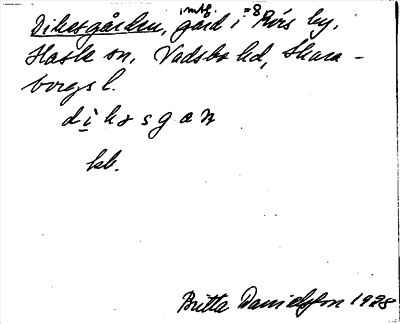 i mtg. =8
Dikesgården, gård i Röis by,
Hassle sn, Vadsbo hd, Skara-
borgs l.
dikəsgan
kb.
Britta Danielsson 1928